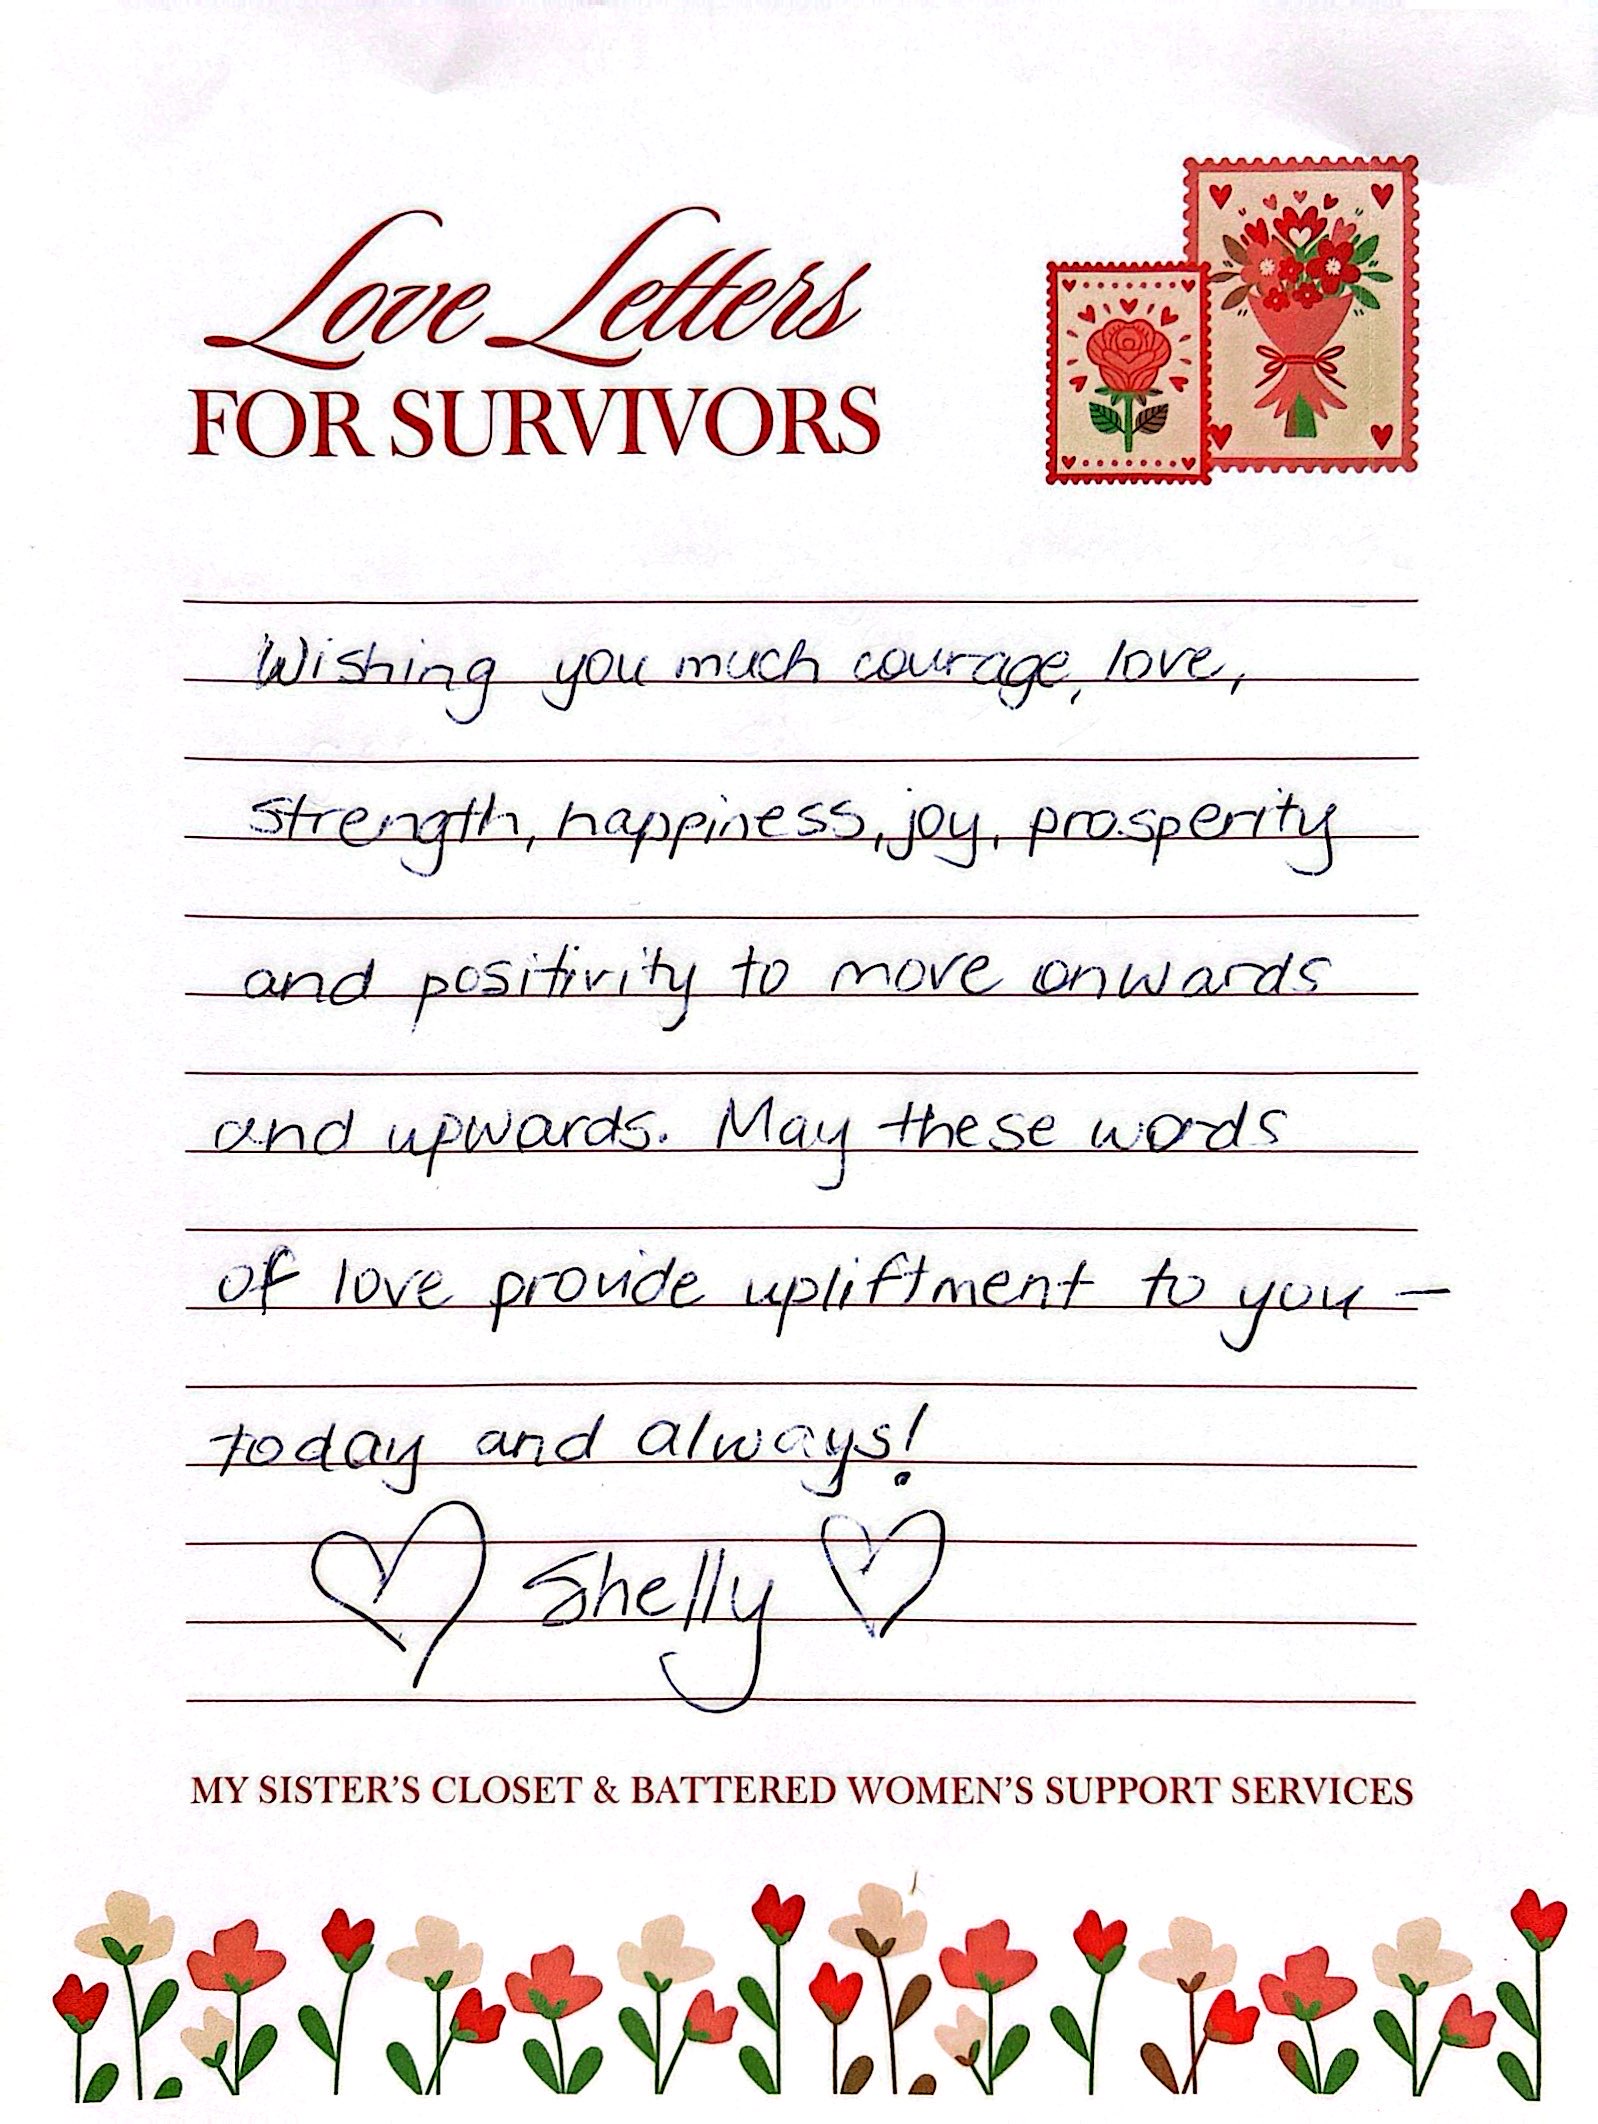 Love Letters
FOR SURVIVORS
Wishing you much courage, love,
strength, happiness, joy, prosperity
and positivity to move onwards
and upwards. May these words
of love provide upliftment to you —
today and always!
Shelly
MY SISTER'S CLOSET & BATTERED WOMEN'S SUPPORT SERVICES